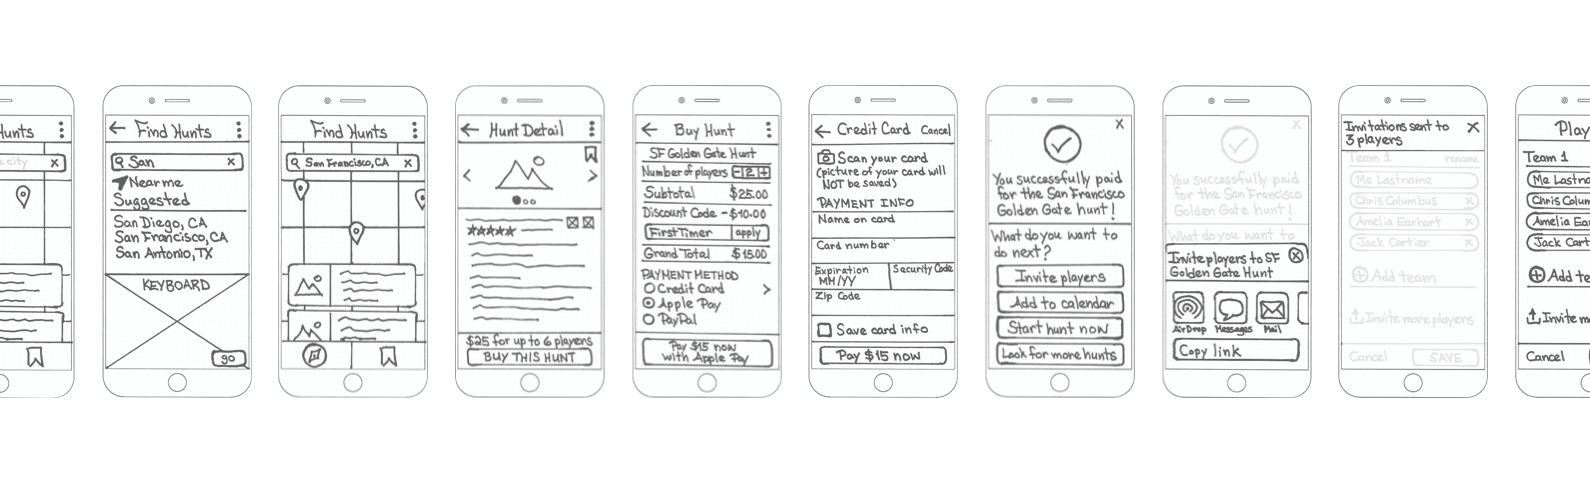 Hunts
a city
x
← Find Hunts
San x
Near me
Suggested
San Diego, CA
San Francisco, CA
San Antonio, TX
KEYBOARD
go
Find Hunts
San Francisco, CA x
← Hunt Detail
< >
★★★★★
$25 for up to 6 players
BUY THIS HUNT
← Buy Hunt
SF Golden Gate Hunt
Number of players -2+
Subtotal $25.00
Discount Code -$10.00
First Timer apply
Grand Total $15.00
PAYMENT METHOD
Credit Card >
Apple Pay
PayPal
Pay $15 now
with Apple Pay
← Credit Card Cancel
Scan your card
(picture of your card will
NOT be saved)
PAYMENT INFO
Name on card
Card number
Expiration Security Code
MM/YY
Zip Code
Save card info
Pay $15 now
X
You successfully paid
for the San Francisco
Golden Gate hunt!
What do you want to
do next?
Invite players
Add to calendar
Start hunt now
Look for more hunts
X
You successfully paid
for the San Francisco
Golden Gate hunt!
What do you want to
Invite players to SF X
Golden Gate Hunt
AirDrop Messages Mail
Copy link
Invitations sent to X
3 players
Team 1 rename
Me Lastname
Chris Columbus x
Amelia Earhart x
Jack Cartier x
+ Add team
Invite more players
Cancel SAVE
Play
Team 1
Me Lastna
Chris Colum
Amelia Ear
Jack Cartie
+ Add te
Invite mo
Cancel